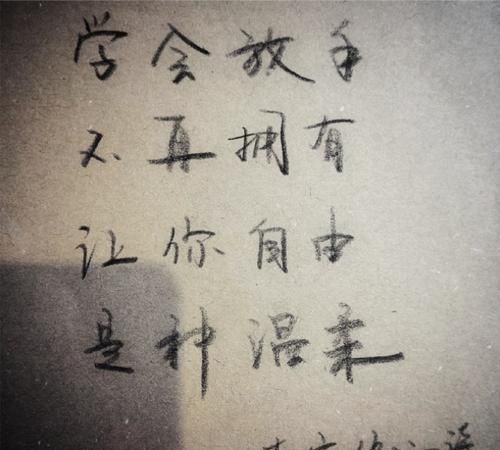 学会放手
不再拥有
让你自由
是种温柔